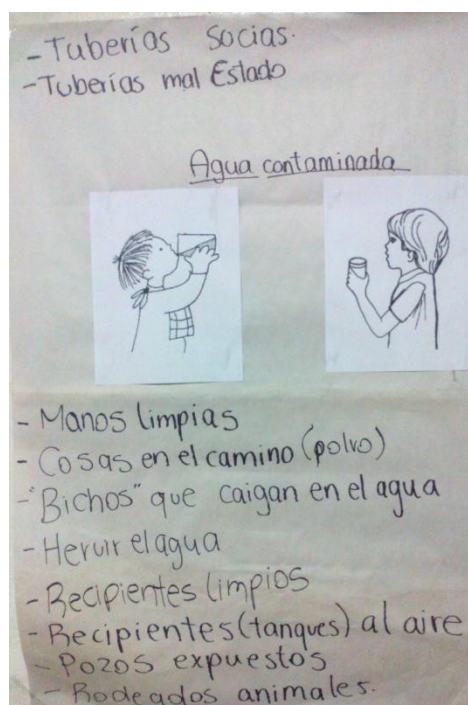 - Tuberías Socias.
- Tuberías mal Estado
Agua contaminada
- Manos limpias
- Cosas en el camino (polvo)
- "Bichos" que caigan en el agua
- Hervir el agua
- Recipientes limpios
- Recipientes (tanques) al aire
- Pozos expuestos
- Rodeados animales.